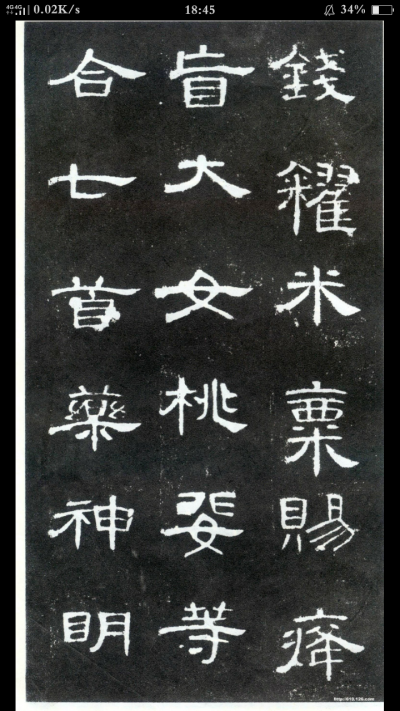 0.02K/s 18:45 34%
錢糴米粟賜癃
盲大女桃婓等
合七首藥神明